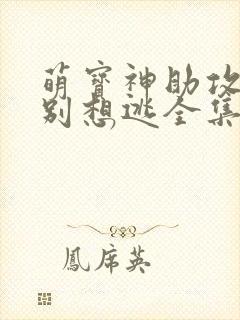 萌宝神助攻
别想逃全集
鳳席英